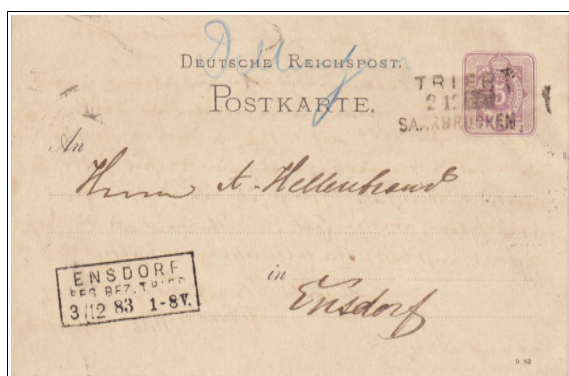 DEUTSCHE REICHSPOST.
POSTKARTE.
TRIER
2 12
SAARBRÜCKEN
5
An
Herrn A. Hellenbrand
in
Ensdorf
ENSDORF
REG. BEZ. TRIER
3/12 83 1-8V.
9 83